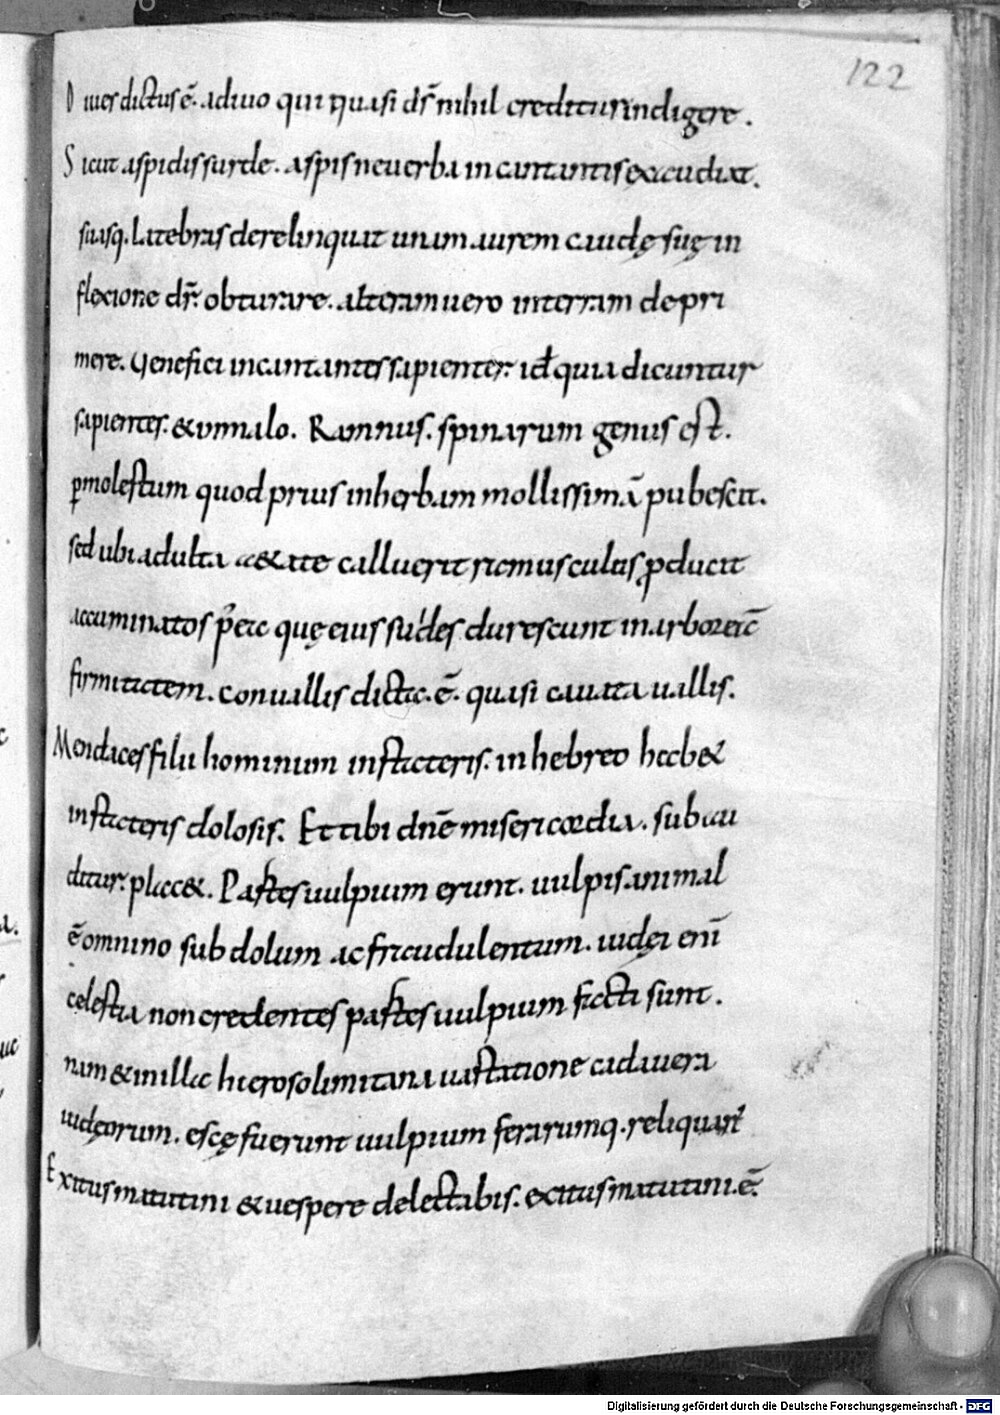 122
Diues dictus ē. adiuo qui quasi dr̄ nihil creditur indigere.
Sicut aspidis surde. aspis ne uerba incantantis exaudiat.
suasq. latebras derelinquat unam aurem caudę suę in
flexione dr̄. obturare. alteram uero interram depri
mere. Uenefici incantantes sapienter. id quia dicuntur
sapientes. & inmalo. Ramnus. spinarum genus est.
ꝑmolestum quod prius inherbam mollissimā pubescit.
sed ubi adulta aetate calluerit ramusculus ꝓducit
accuminatos p̄ter quę eius sudes durescunt in arboreā
firmitatem. conuallis dicta. ē. quasi cauata uallis.
Mendaces filii hominum instateris. in hebreo hab&
instateris dolosis. Et tibi dn̄e misericordia. subau
ditur. plac&. Partes uulpium erunt. uulpis animal
ē omnino subdolum ac fraudulentum. iudęi enī
celestia non credentes partes uulpium facti sunt.
nam & in illa hierosolimitana uastatione cadauera
iudęorum. escę fuerunt uulpium ferarumq. reliquarū
Exitus matutini & uespere delectabis. exitus matutini. ē.
Digitalisierung gefördert durch die Deutsche Forschungsgemeinschaft - DFG